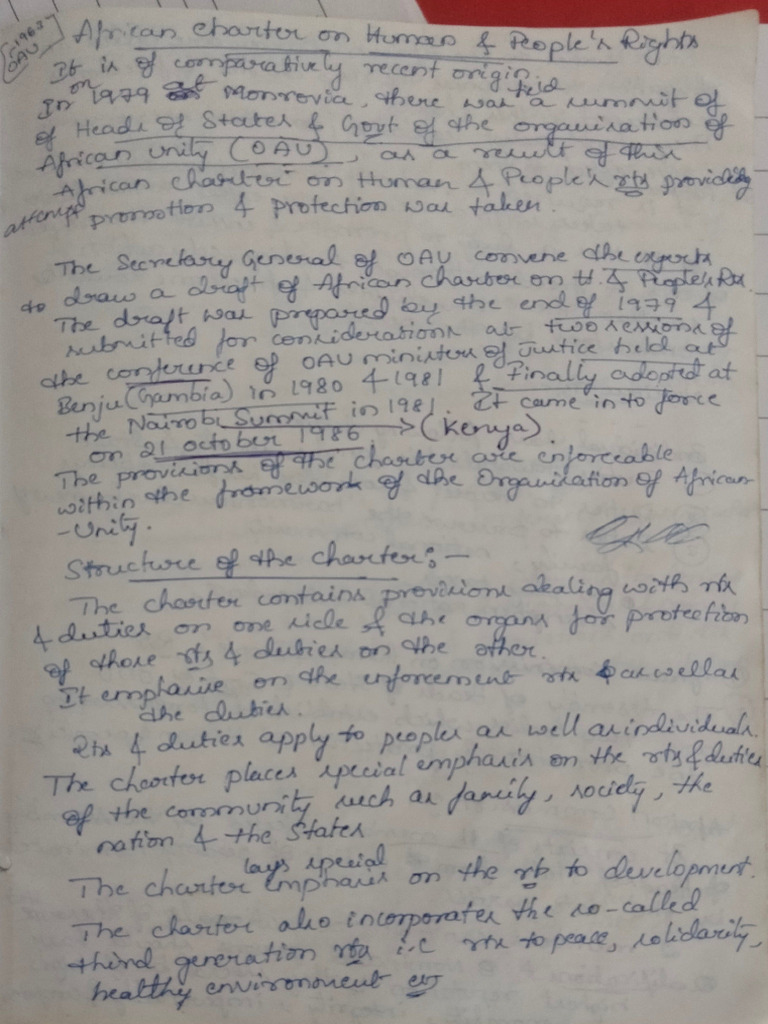 1963
OAU
African Charter on Human & People's Rights
It is of comparatively recent origin.
In on 1979 at Monrovia, there was held a summit of
of Heads of States & Govt of the organisation of
African Unity (OAU), as a result of this
African charter on Human & People's rts providing
attempt promotion & protection was taken.
The Secretary General of OAU convene the experts
to draw a draft of African charter on H. & People's Rts.
The draft was prepared by the end of 1979 &
submitted for considerations at two sessions of
the conference of OAU ministers of Justice held at
Benju (Gambia) in 1980 & 1981 & finally adopted at
the Nairobi Summit in 1981. It came in to force
on 21 October 1986 → (Kenya).
The provisions of the charter are enforceable
within the framework of the Organisation of African
- Unity.
Structure of the charter:-
The charter contains provisions dealing with rts
& duties on one side & the organs for protection
of those rts & duties on the other.
It emphasise on the enforcement rts as well as
the duties.
Rts & duties apply to peoples as well as individuals.
The charter places special emphasis on the rts & duties
of the community such as family, society, the
nation & the States
The charter lays special emphasis on the rt to development.
The charter also incorporates the so-called
third generation rts i.e rts to peace, solidarity,
healthy environment etc